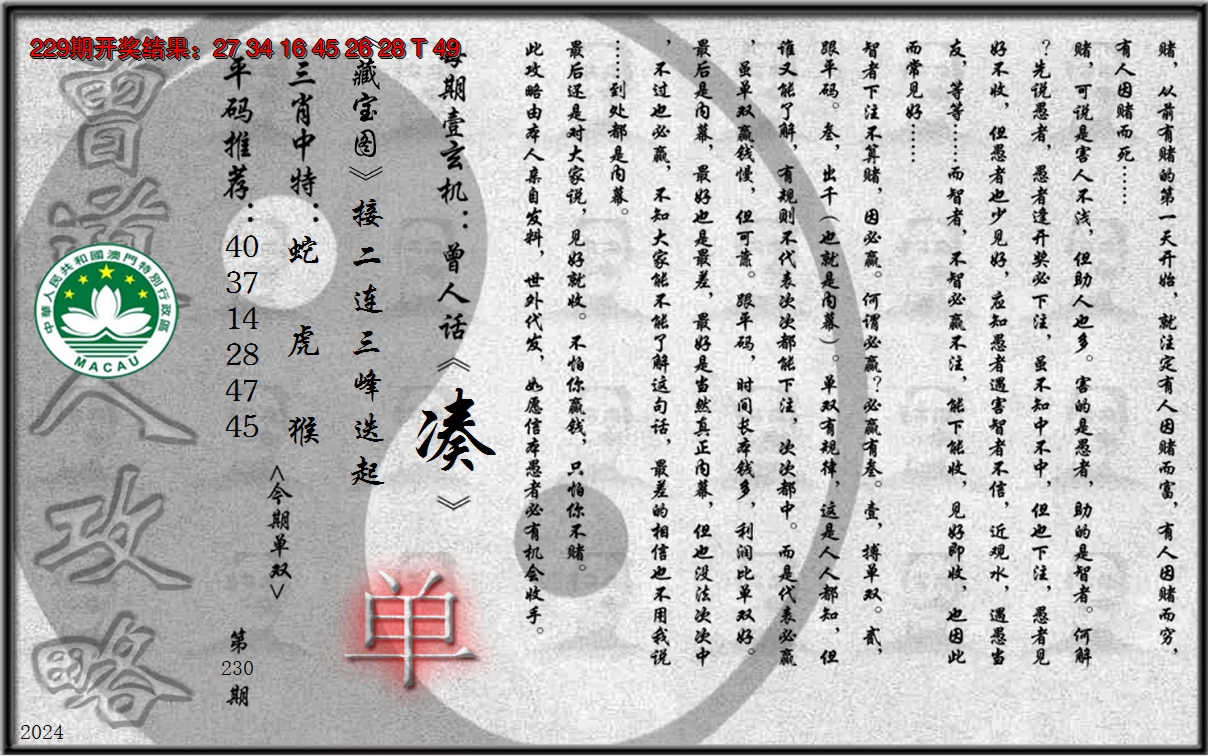 229期开奖结果：27 34 16 45 26 28 T 49
赌，从前有赌的第一天开始，就注定有人因赌而富，有人因赌而穷，
有人因赌而死……
赌，可说是害人不浅，但助人也多。害的是愚者，助的是智者。何解
？先说愚者，愚者逢开奖必下注，虽不知中不中，但也下注，愚者见
好不收，但愚者也少见好，应知愚者遇害智者不信，近观水，遇愚当
友，等等……而智者，不智必赢不注，能下能收，见好即收，也因此
而常见好……
智者下注不算赌，因必赢。何谓必赢？必赢有叁。壹，搏单双。贰，
跟平码。叁，出千（也就是内幕）。单双有规律，这是人人都知，但
谁又能了解，有规则不代表次次都能下注，次次都中。而是代表必赢
，虽单双赢钱慢，但可靠。跟平码，时间长本钱多，利润比单双好。
最后是内幕，最好也是最差，最好是当然真正内幕，但也没法次次中
，不过也必赢，不知大家能不能了解这句话，最差的相信也不用我说
……到处都是内幕。
最后还是对大家说，见好就收。不怕你赢钱，只怕你不赌。
此攻略由本人亲自发料，世外代发，如愿信本愚者必有机会收手。
每期壹玄机：曾人话《凑》
《藏宝图》接二连三峰迭起
三肖中特：蛇 虎 猴
平码推荐：40 37 14 28 47 45
<今期单双>
单
第230期
曾道人攻略
中華人民共和國澳門特別行政區
MACAU
2024